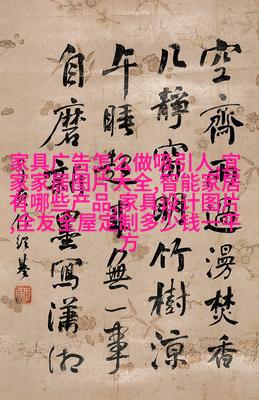 空齋雨過漫焚香
几靜窗明竹樹涼
午睡起來無一事
自磨墨寫瀟湘
家具广告怎么做吸引人,宜
家家图片大全,智能家居
有哪些产品,家具设计图片
,全友全屋定制多少钱一平
方